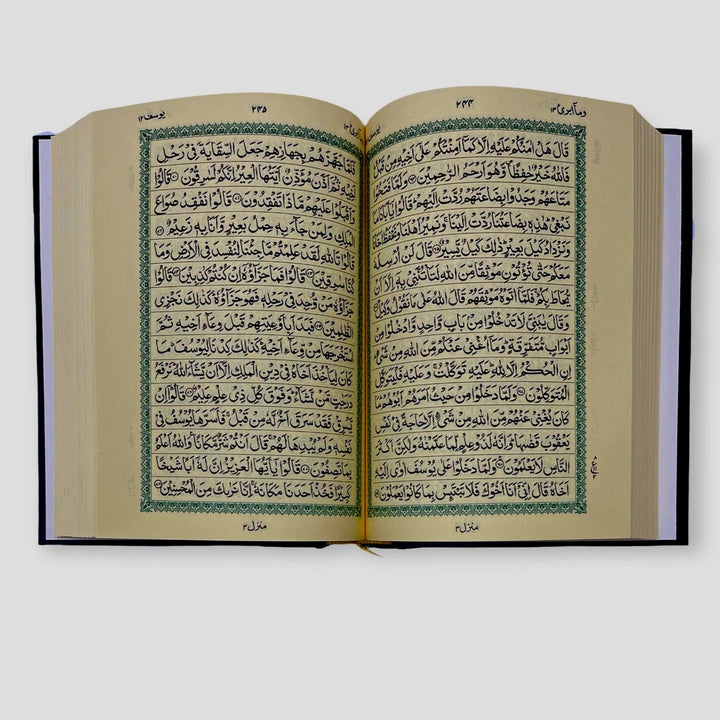 وما ابرئ ١٣
٢٤٤
قَالَ هَلْ اٰمَنُكُمْ عَلَيْهِ اِلَّا كَمَاۤ اَمِنْتُكُمْ عَلٰۤى اَخِيْهِ مِنْ قَبْلُ
فَاللّٰهُ خَيْرٌ حٰفِظًا وَّهُوَ اَرْحَمُ الرّٰحِمِيْنَ وَلَمَّا فَتَحُوْا
مَتَاعَهُمْ وَجَدُوْا بِضَاعَتَهُمْ رُدَّتْ اِلَيْهِمْ قَالُوْا يٰۤاَبَانَا مَا
نَبْغِيْ هٰذِهٖ بِضَاعَتُنَا رُدَّتْ اِلَيْنَا وَنَمِيْرُ اَهْلَنَا وَنَحْفَظُ اَخَانَا
وَنَزْدَادُ كَيْلَ بَعِيْرٍ ذٰلِكَ كَيْلٌ يَّسِيْرٌ قَالَ لَنْ اُرْسِلَهٗ
مَعَكُمْ حَتّٰى تُؤْتُوْنِ مَوْثِقًا مِّنَ اللّٰهِ لَتَاْتُنَّنِيْ بِهٖۤ اِلَّاۤ اَنْ
يُّحَاطَ بِكُمْ فَلَمَّاۤ اٰتَوْهُ مَوْثِقَهُمْ قَالَ اللّٰهُ عَلٰى مَا نَقُوْلُ وَكِيْلٌ
وَقَالَ يٰبَنِيَّ لَا تَدْخُلُوْا مِنْۢ بَابٍ وَّاحِدٍ وَّادْخُلُوْا مِنْ
اَبْوَابٍ مُّتَفَرِّقَةٍ وَمَاۤ اُغْنِيْ عَنْكُمْ مِّنَ اللّٰهِ مِنْ شَيْءٍ
اِنِ الْحُكْمُ اِلَّا لِلّٰهِ عَلَيْهِ تَوَكَّلْتُ وَعَلَيْهِ فَلْيَتَوَكَّلِ
الْمُتَوَكِّلُوْنَ وَلَمَّا دَخَلُوْا مِنْ حَيْثُ اَمَرَهُمْ اَبُوْهُمْ مَا
كَانَ يُغْنِيْ عَنْهُمْ مِّنَ اللّٰهِ مِنْ شَيْءٍ اِلَّا حَاجَةً فِيْ نَفْسِ
يَعْقُوْبَ قَضٰىهَا وَاِنَّهٗ لَذُوْ عِلْمٍ لِّمَا عَلَّمْنٰهُ وَلٰكِنَّ اَكْثَرَ
النَّاسِ لَا يَعْلَمُوْنَ وَلَمَّا دَخَلُوْا عَلٰى يُوْسُفَ اٰوٰۤى اِلَيْهِ
اَخَاهُ قَالَ اِنِّيْۤ اَنَا اَخُوْكَ فَلَا تَبْتَئِسْ بِمَا كَانُوْا يَعْمَلُوْنَ
منزل ٣
٢٤٥
يوسف ١٢
فَلَمَّا جَهَّزَهُمْ بِجَهَازِهِمْ جَعَلَ السِّقَايَةَ فِيْ رَحْلِ
اَخِيْهِ ثُمَّ اَذَّنَ مُؤَذِّنٌ اَيَّتُهَا الْعِيْرُ اِنَّكُمْ لَسٰرِقُوْنَ قَالُوْا
وَاَقْبَلُوْا عَلَيْهِمْ مَّاذَا تَفْقِدُوْنَ قَالُوْا نَفْقِدُ صُوَاعَ
الْمَلِكِ وَلِمَنْ جَآءَ بِهٖ حِمْلُ بَعِيْرٍ وَّاَنَا بِهٖ زَعِيْمٌ
قَالُوْا تَاللّٰهِ لَقَدْ عَلِمْتُمْ مَّا جِئْنَا لِنُفْسِدَ فِي الْاَرْضِ وَمَا
كُنَّا سٰرِقِيْنَ قَالُوْا فَمَا جَزَآؤُهٗۤ اِنْ كُنْتُمْ كٰذِبِيْنَ قَالُوْا
جَزَآؤُهٗ مَنْ وُّجِدَ فِيْ رَحْلِهٖ فَهُوَ جَزَآؤُهٗ كَذٰلِكَ نَجْزِي
الظّٰلِمِيْنَ فَبَدَاَ بِاَوْعِيَتِهِمْ قَبْلَ وِعَآءِ اَخِيْهِ ثُمَّ
اسْتَخْرَجَهَا مِنْ وِّعَآءِ اَخِيْهِ كَذٰلِكَ كِدْنَا لِيُوْسُفَ مَا
كَانَ لِيَاْخُذَ اَخَاهُ فِيْ دِيْنِ الْمَلِكِ اِلَّاۤ اَنْ يَّشَآءَ اللّٰهُ نَرْفَعُ
دَرَجٰتٍ مَّنْ نَّشَآءُ وَفَوْقَ كُلِّ ذِيْ عِلْمٍ عَلِيْمٌ قَالُوْۤا اِنْ
يَّسْرِقْ فَقَدْ سَرَقَ اَخٌ لَّهٗ مِنْ قَبْلُ فَاَسَرَّهَا يُوْسُفُ فِيْ
نَفْسِهٖ وَلَمْ يُبْدِهَا لَهُمْ قَالَ اَنْتُمْ شَرٌّ مَّكَانًا وَاللّٰهُ اَعْلَمُ
بِمَا تَصِفُوْنَ قَالُوْا يٰۤاَيُّهَا الْعَزِيْزُ اِنَّ لَهٗۤ اَبًا شَيْخًا
كَبِيْرًا فَخُذْ اَحَدَنَا مَكَانَهٗ اِنَّا نَرٰىكَ مِنَ الْمُحْسِنِيْنَ
منزل ٣